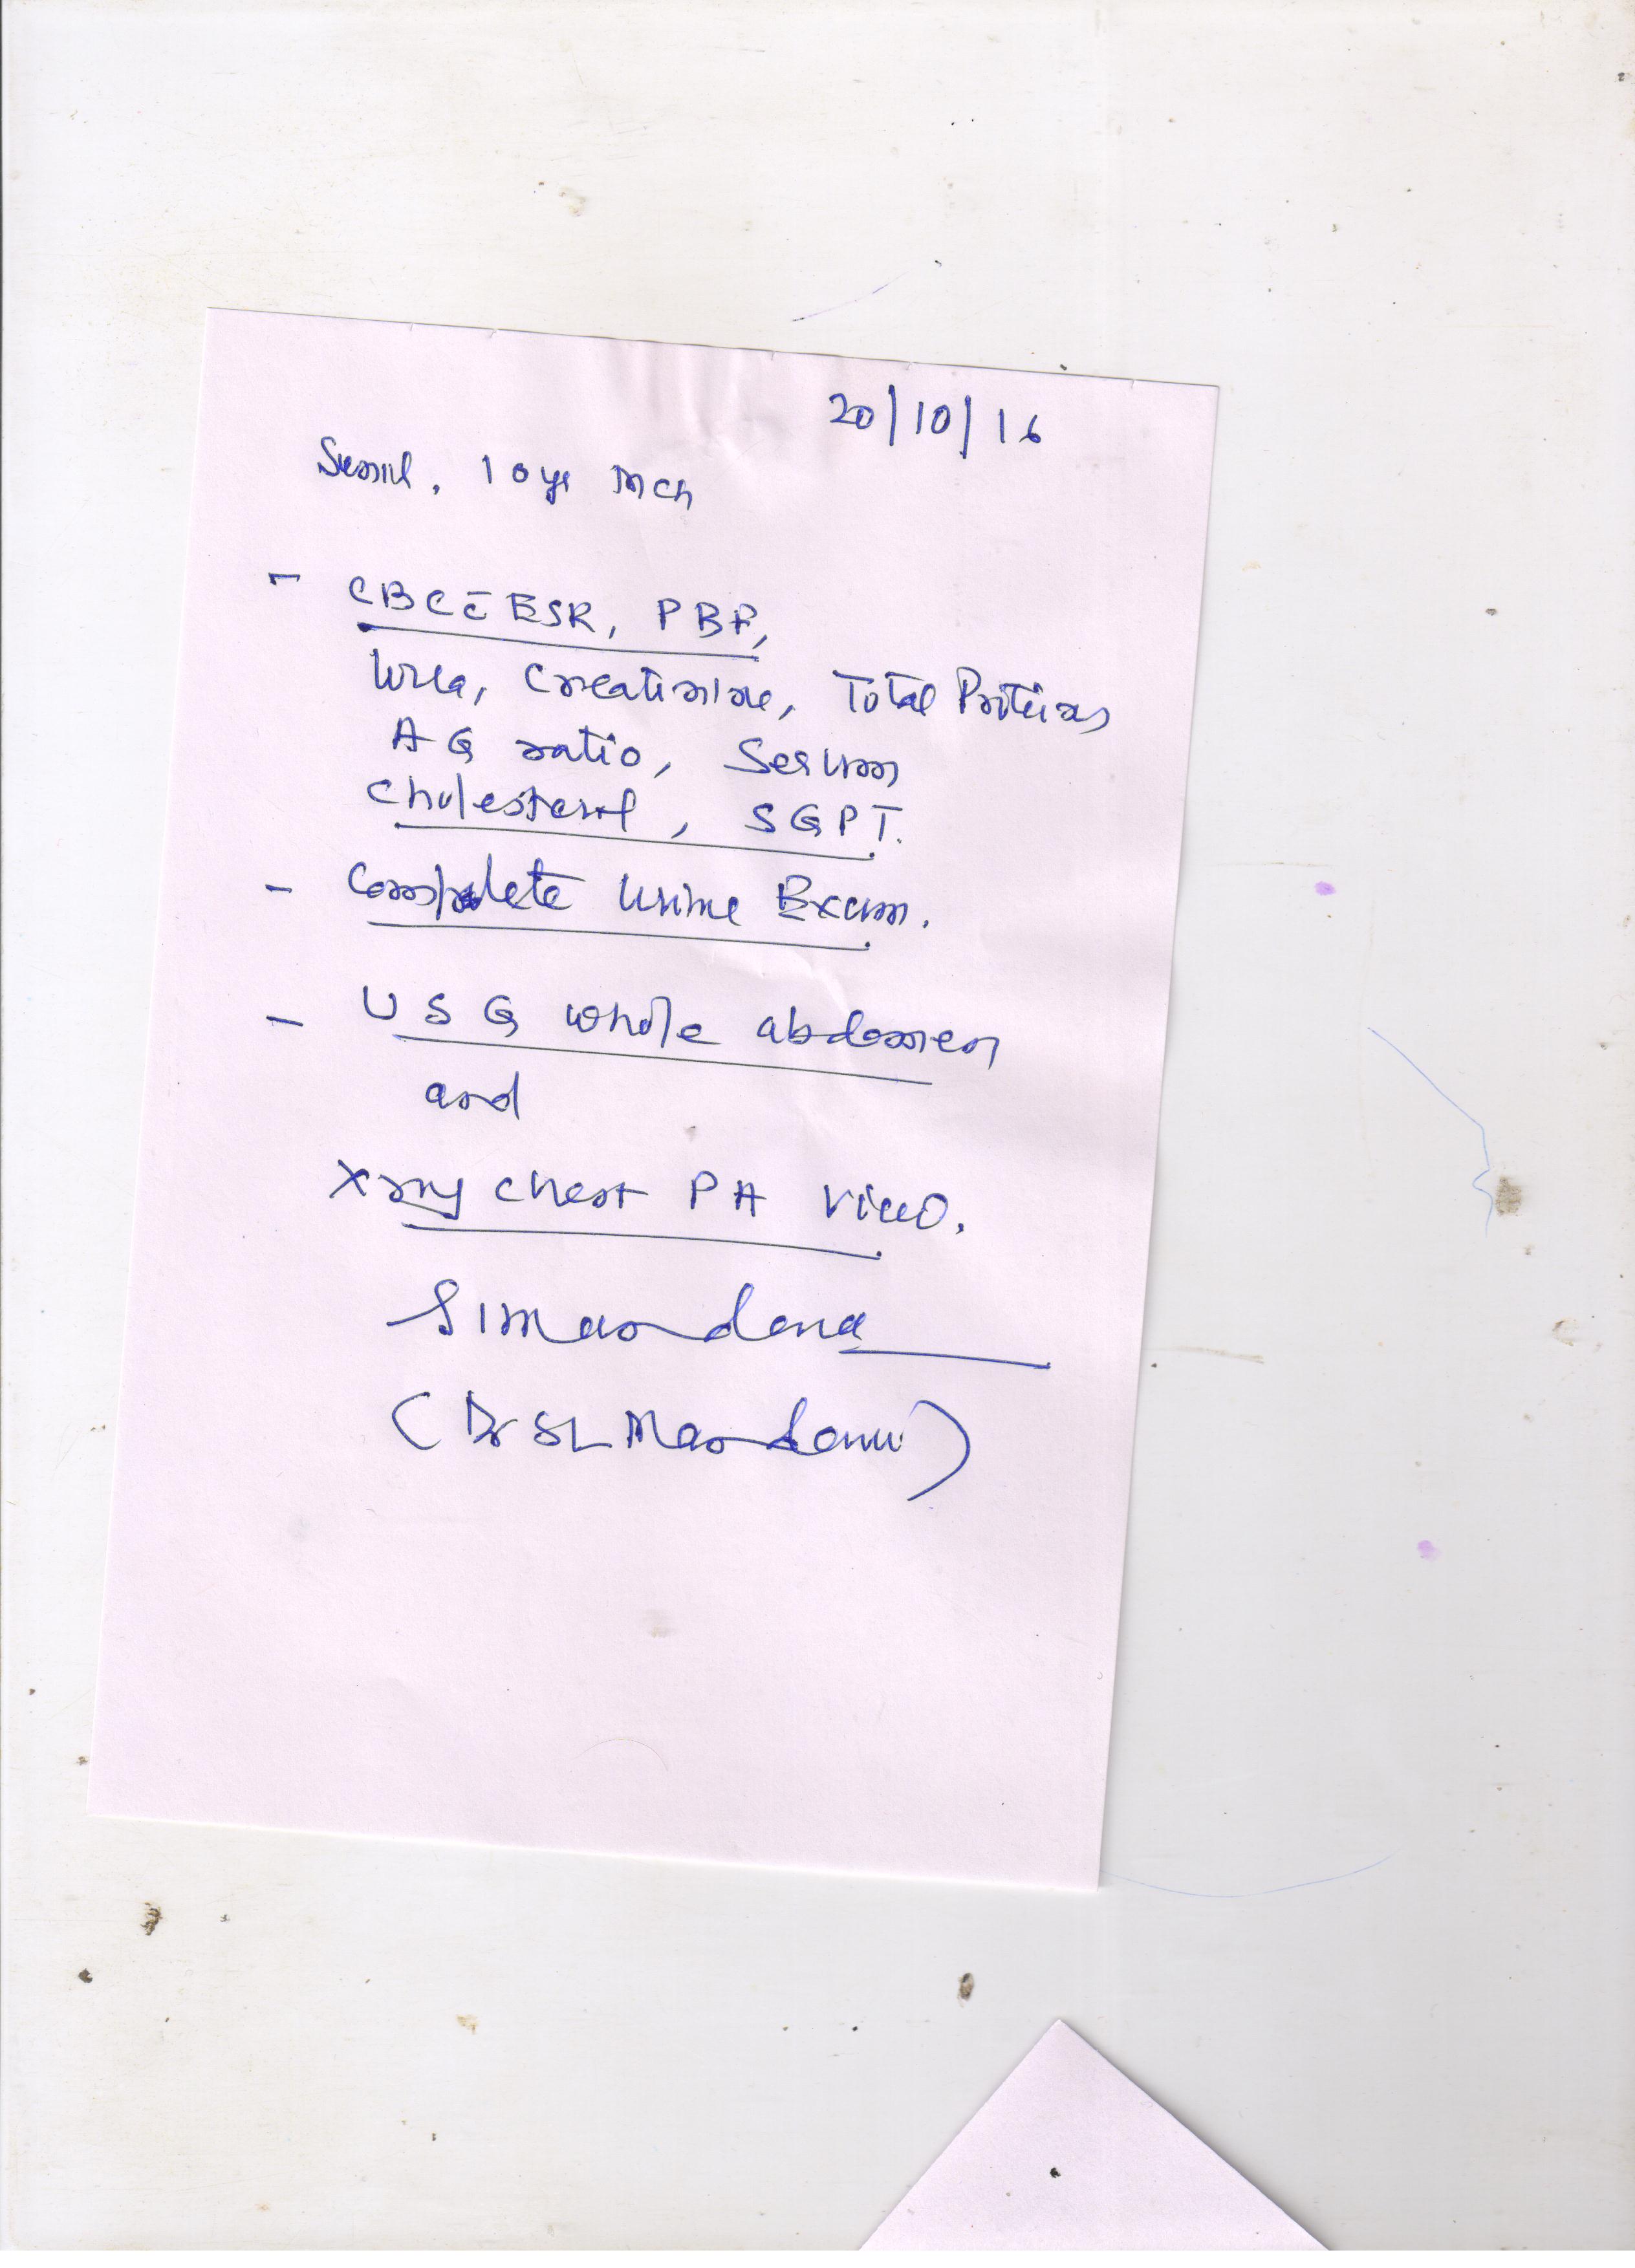 20/10/16
10 yr Mch
- CBC c̄ ESR, PBF,
Urea, Creatinine, Total Proteins
AG ratio, Serum
Cholesterol, SGPT.
- Complete Urine Exam.
- USG whole abdomen
and
Xray chest PA view.
(Dr SL Mandawi)